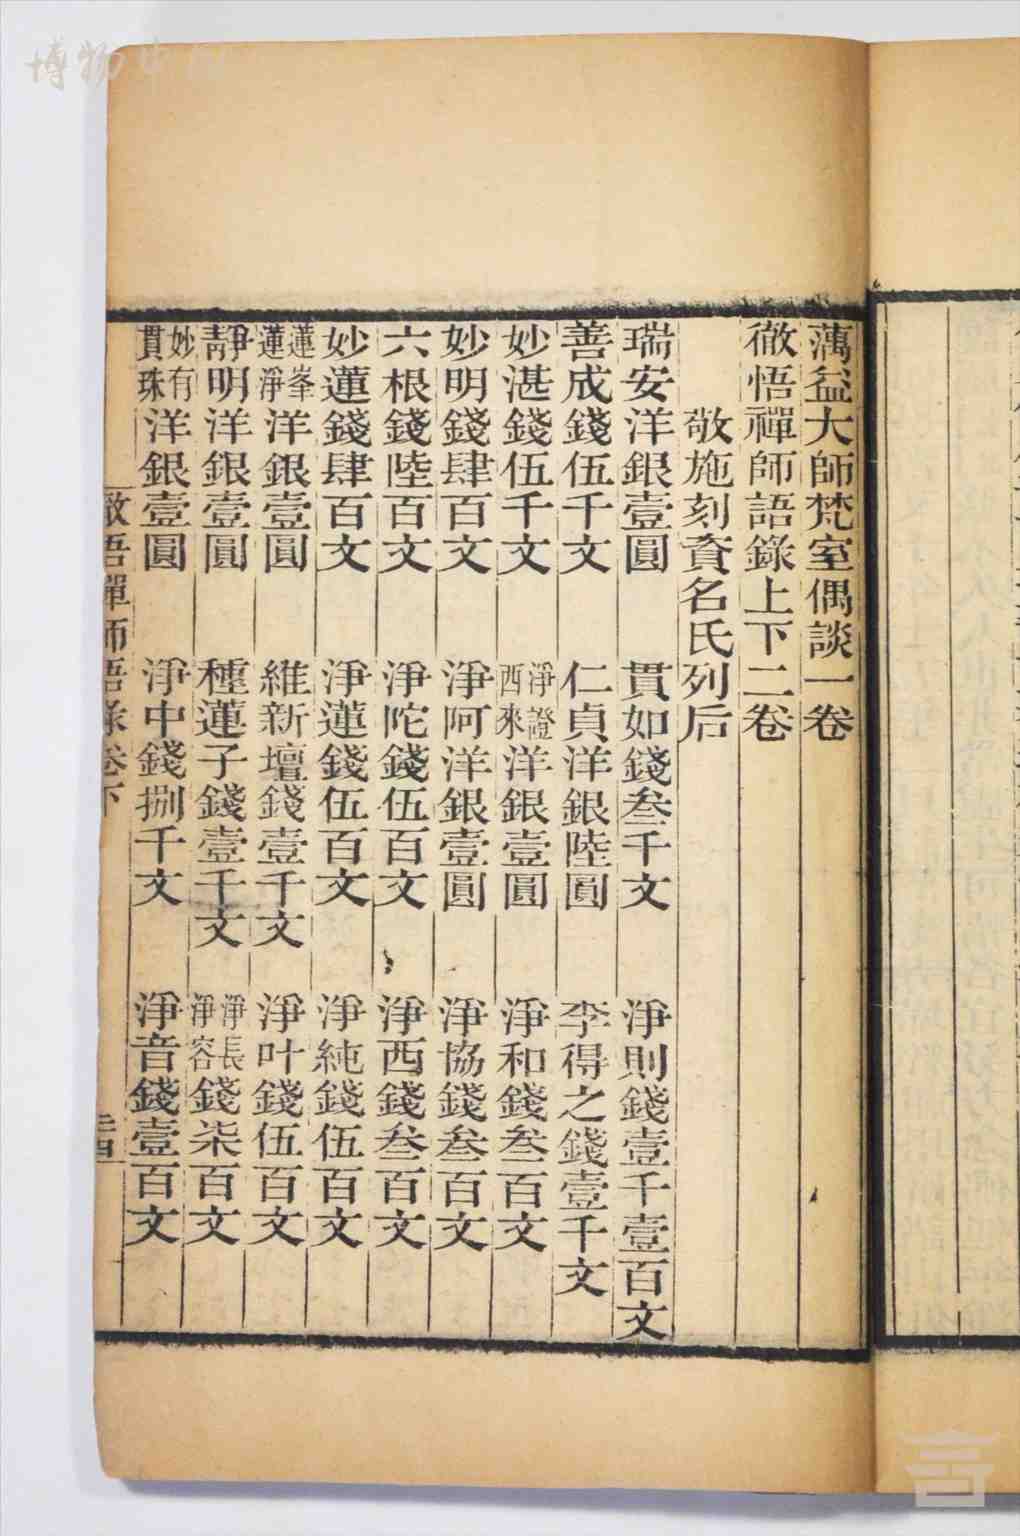 蕅益大師梵室偶談一卷
徹悟禪師語錄上下二卷
敬施刻資名氏列后
瑞安洋銀壹圓　貫如錢叁千文　淨則錢壹千壹百文
善成錢伍千文　仁貞洋銀陸圓　李得之錢壹千文
妙湛錢伍千文　淨證西來洋銀壹圓　淨和錢叁百文
妙明錢肆百文　淨阿洋銀壹圓　淨協錢叁百文
六根錢陸百文　淨陀錢伍百文　淨西錢叁百文
妙蓮錢肆百文　淨蓮錢伍百文　淨純錢伍百文
蓮峯蓮淨洋銀壹圓　維新壇錢壹千文　淨叶錢伍百文
靜明洋銀壹圓　種蓮子錢壹千文　淨長淨容錢柒百文
妙有貫珠洋銀壹圓　淨中錢捌千文　淨音錢壹百文
徹悟禪師語录卷下
博物中